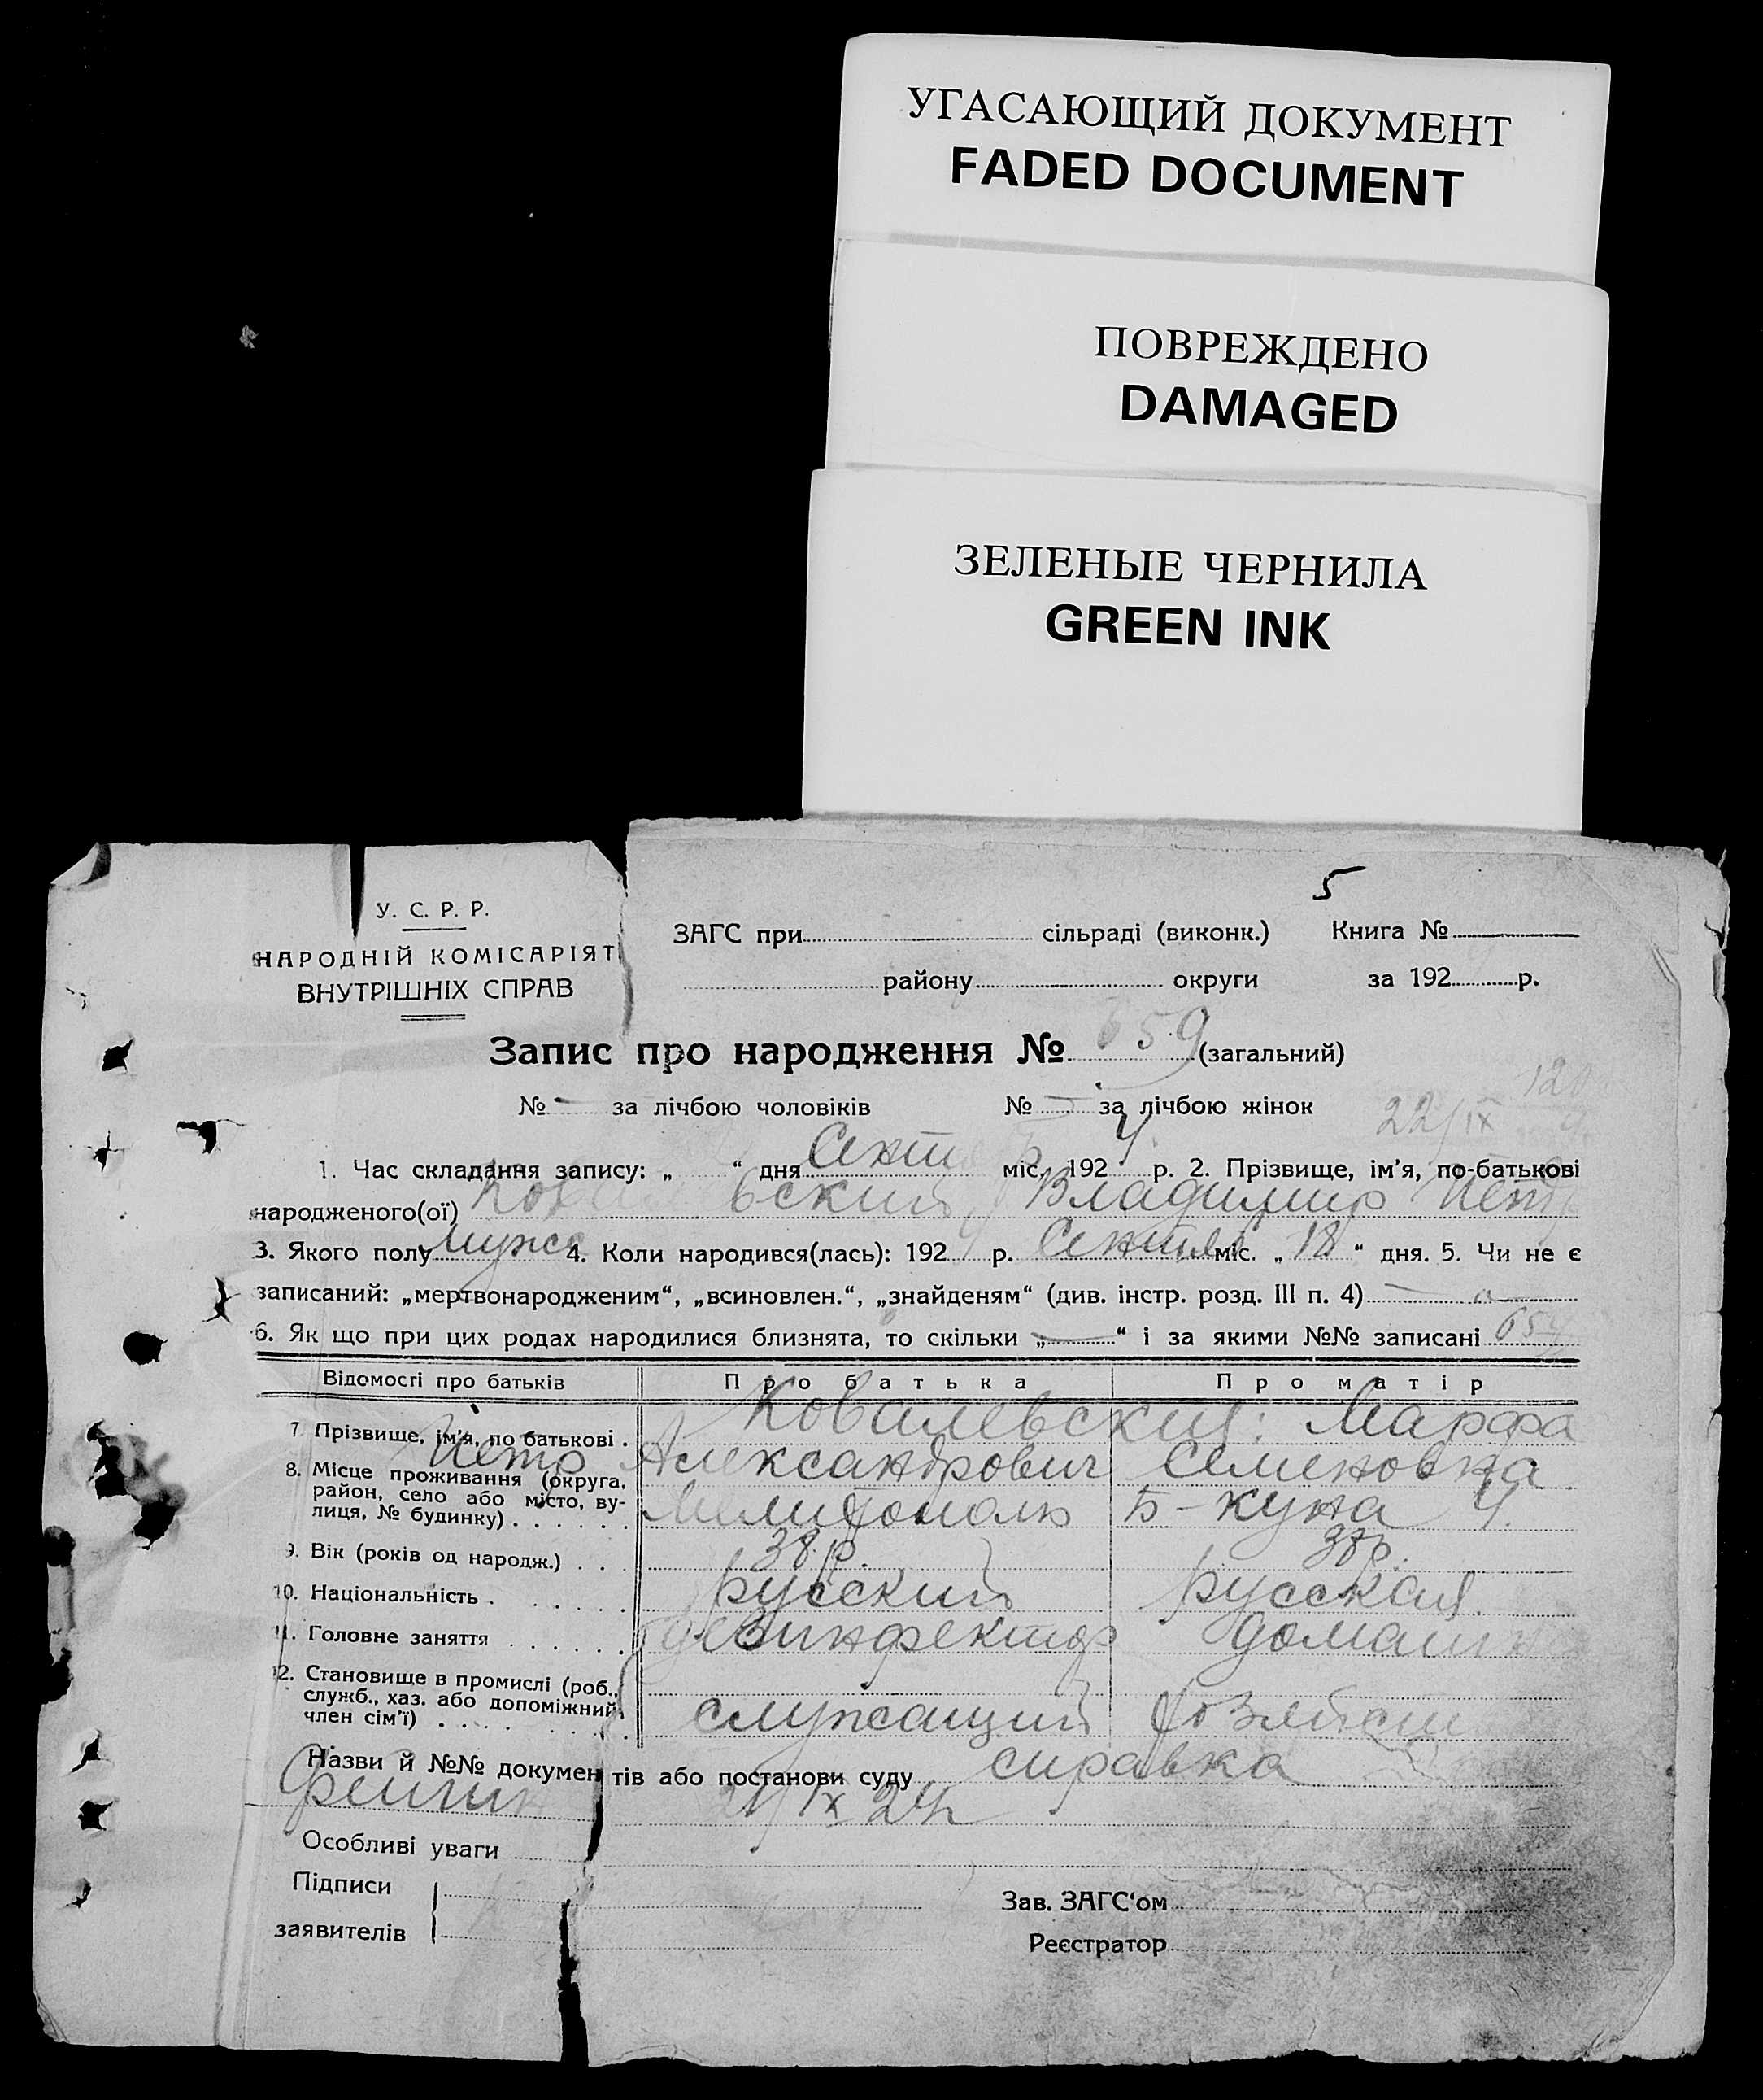 УГАСАЮЩИЙ ДОКУМЕНТ
FADED DOCUMENT
ПОВРЕЖДЕНО
DAMAGED
ЗЕЛЕНЫЕ ЧЕРНИЛА
GREEN INK
5
У. С. Р. Р.
НАРОДНІЙ КОМІСАРІЯТ
ВНУТРІШНІХ СПРАВ
ЗАГС при сільраді (виконк.) Книга №
району округи за 192 р.
Запис про народження № 659 (загальний)
№ — за лічбою чоловіків № — за лічбою жінок
22/IX
1. Час складання запису: „ “ дня Сент міс. 192 4 р. 2. Прізвище, ім’я, по-батькові
народженого(ої) Ковалевский Владимир Петр
3. Якого полу Мужс 4. Коли народився(лась): 192 4 р. Сентяб міс. „ 18 “ дня. 5. Чи не є
записаний: „мертвонародженим“, „всиновлен.“, „знайденям“ (див. інстр. розд. III п. 4) —
6. Як що при цих родах народилися близнята, то скільки „—“ і за якими №№ записані
Відомості про батьків Про батька Про матір
7 Прізвище, ім’я, по батькові . Ковалевский: Марфа
Петр Александрович Семеновна
8. Місце проживання (округа,
район, село або місто, ву-
лиця, № будинку) . . . . . . Мелитополь Б-куна 4.
9. Вік (років од народж.) . . . 38 р. 38 р.
10. Національність . . . . . русский русская
11. Головне заняття . . . . . . дезинфектор домашн
12. Становище в промислі (роб.,
служб., хаз. або допоміжний
член сім’ї) . . . . служащий хозяйст
Назви й №№ документів або постанови суду справка
21/IX 24
Особливі уваги
Підписи
заявителів
Зав. ЗАГС‘ом
Реєстратор